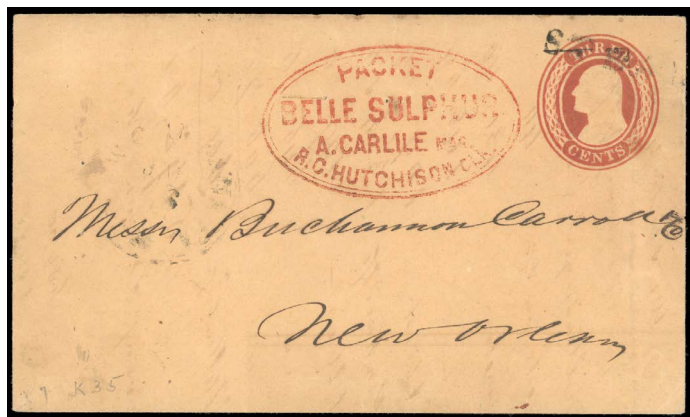 PACKET
BELLE SULPHUR
A. CARLILE MAS.
R.C. HUTCHISON CLK.
THREE
CENTS
Messrs Buchannon Carroll & Co
New Orleans
K35